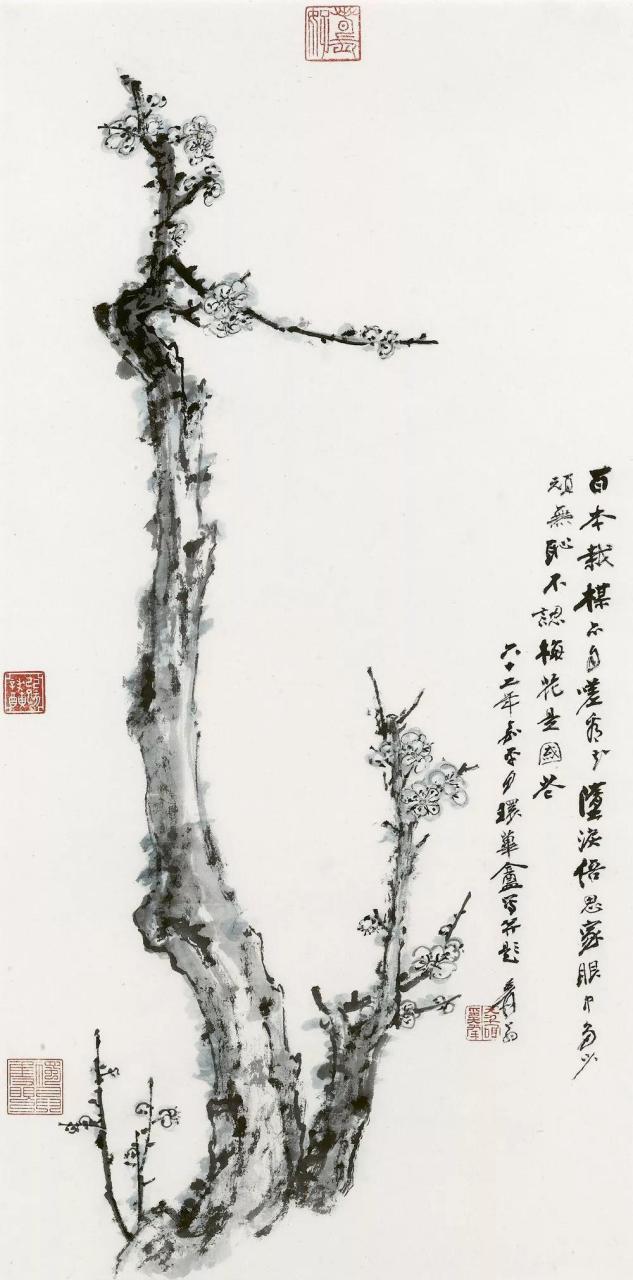 百本栽楳亦自嗟看墮淚倍思家眼中多少
頑無恥不認梅花是國花
六十二年嘉平月環蓽盦寫并題 爰翁